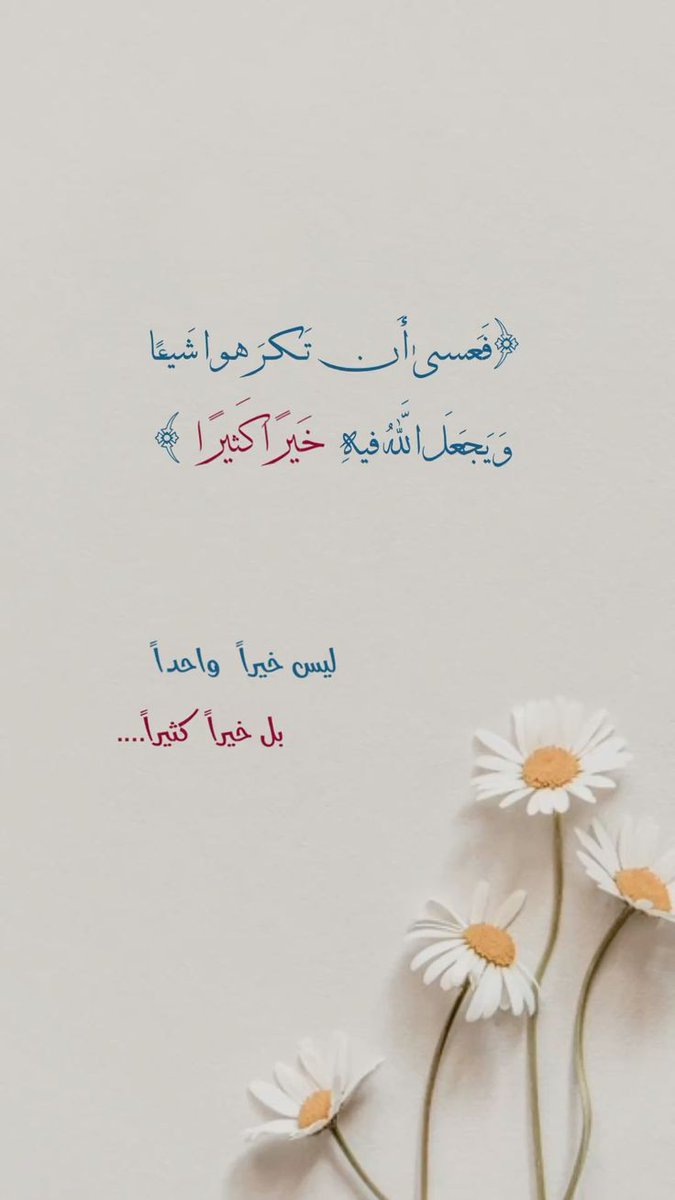 ﴿فَعسىٰ أَن تَكرَهوا شَيئًا
وَيَجعَلَ اللَّهُ فيهِ خَيرًا كَثيرًا﴾
ليس خيراً واحداً
بل خيراً كثيراً....